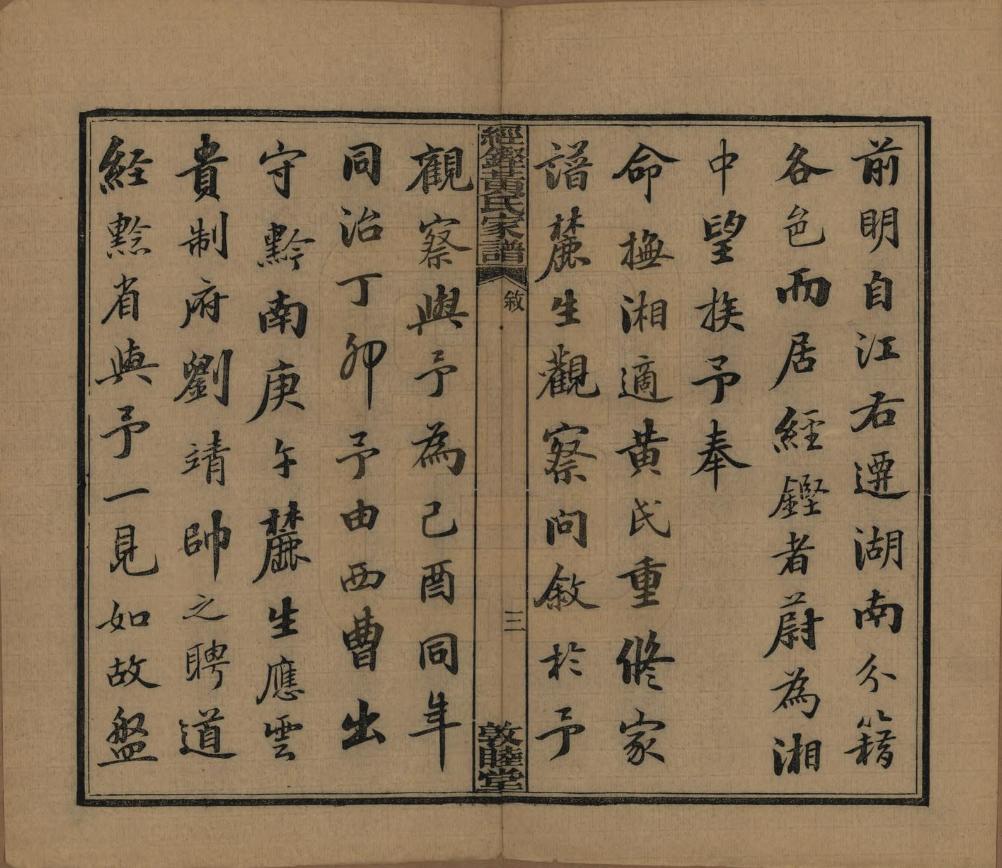 前明自江右遷湖南分籍
各邑而居經鏗者蔚為湘
中望族予奉
命撫湘適黃氏重修家
譜麓生觀察問敘於予
經鏗黃氏家譜 敘 三 敦睦堂
觀察與予為己酉同年
同治丁卯予由西曹出
守黔南庚午麓生應雲
貴制府劉靖帥之聘道
経黔省與予一見如故盤